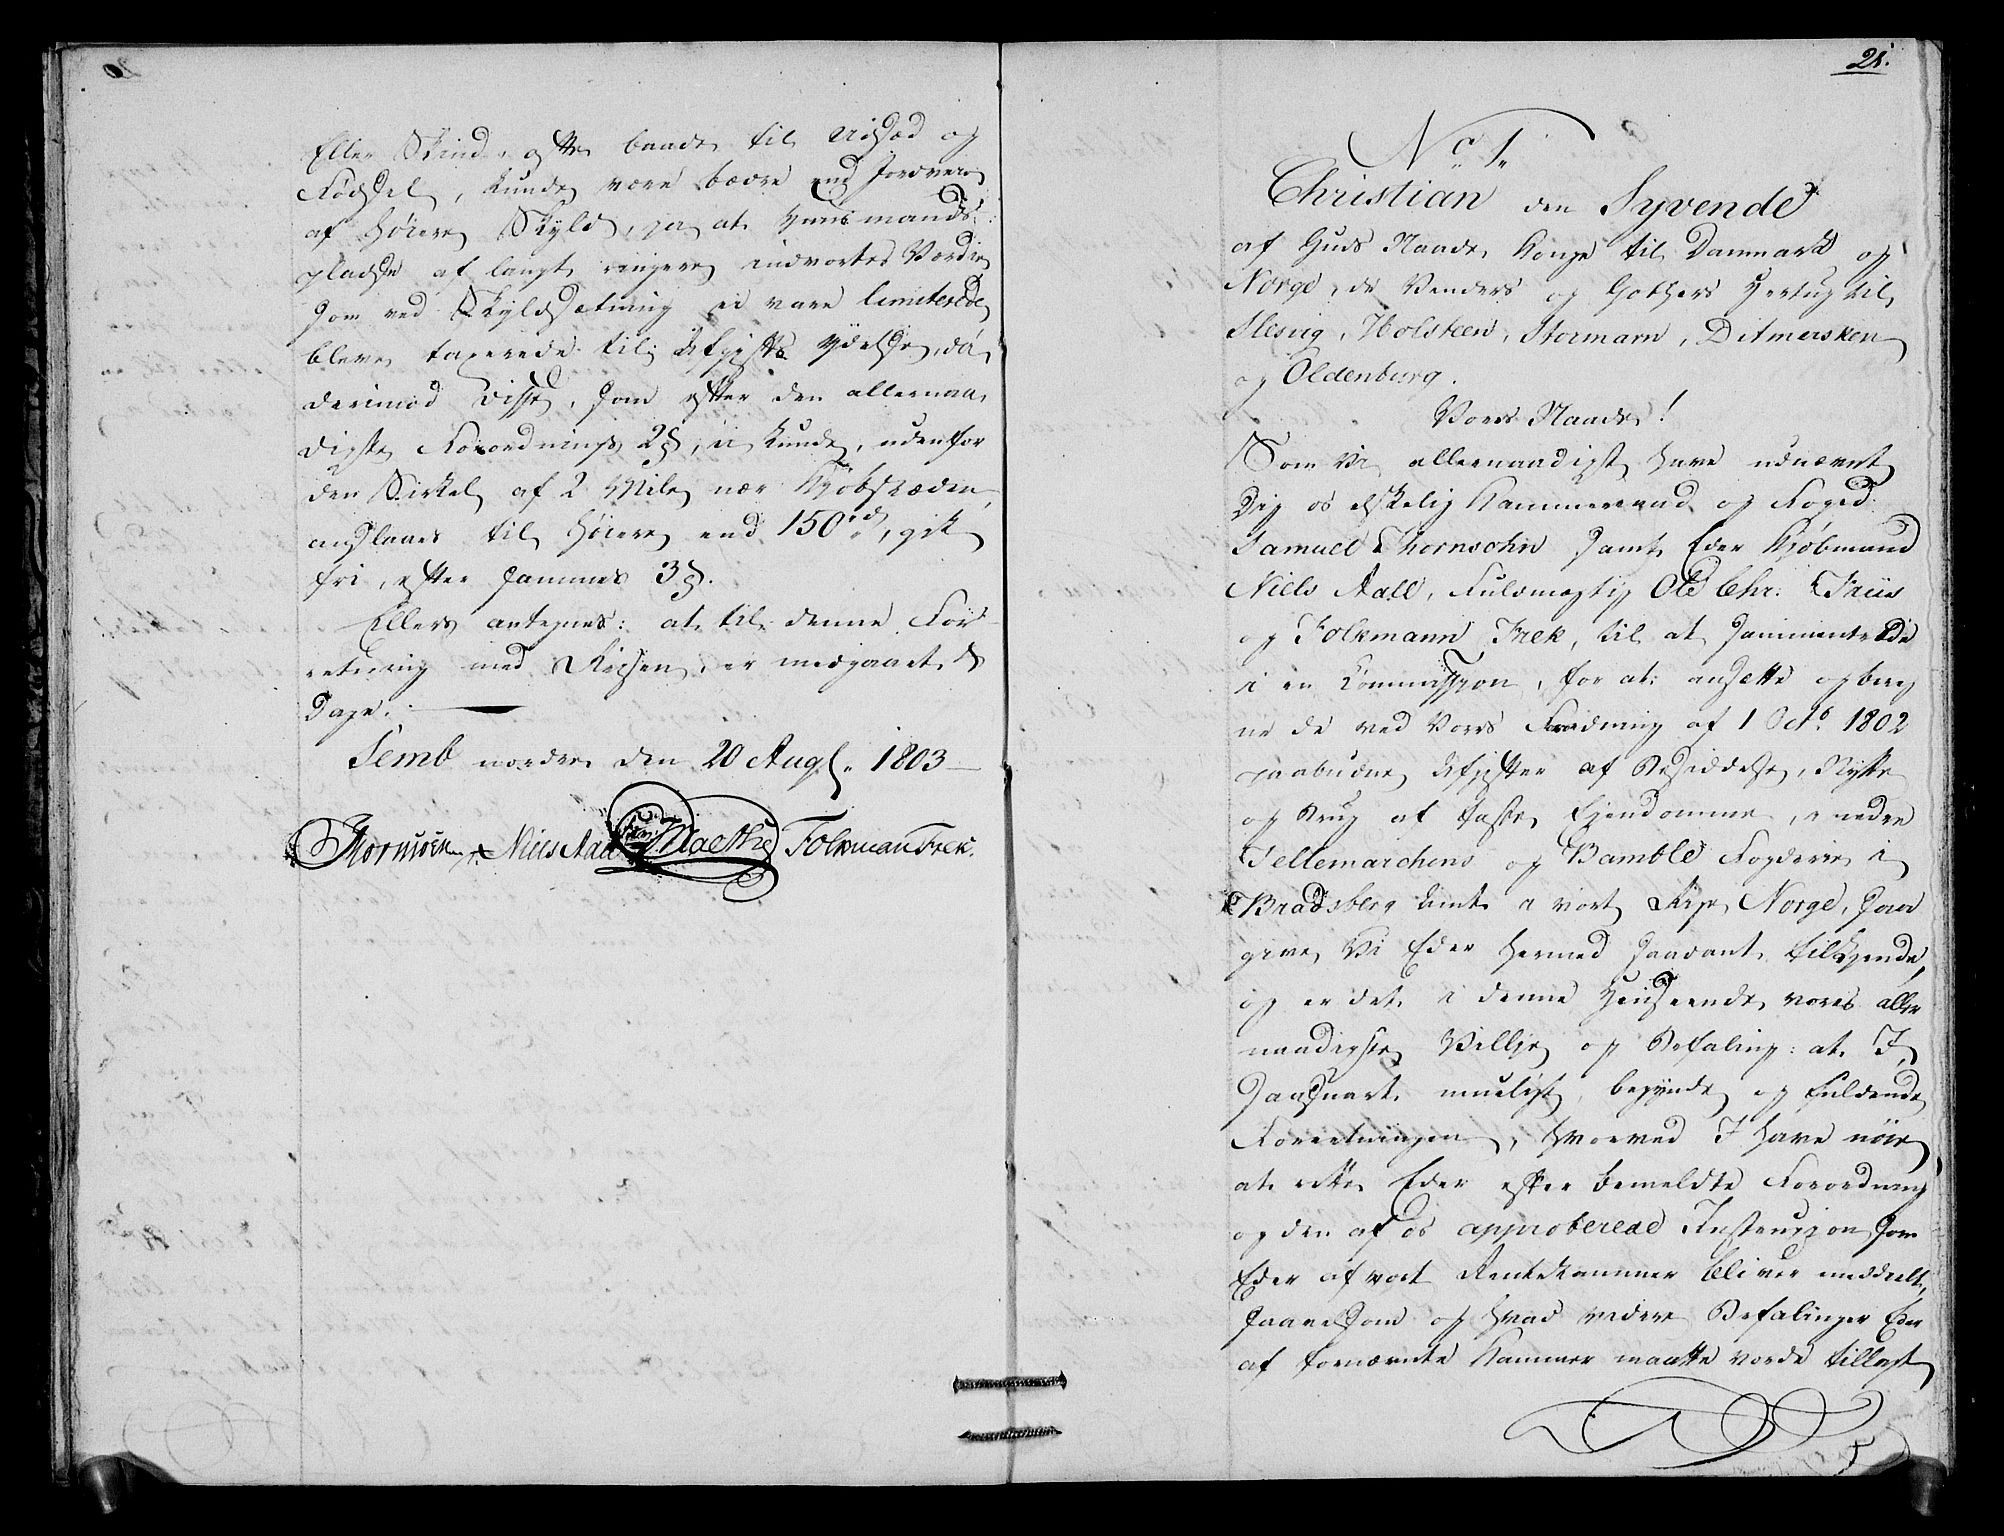 Eller Skind, ofte baade til Udsæd og
Fødsel, kunde være bedre end Jordvei
af høiere Skyld, ja at Huusmands-
pladse af langt ringere indvortes Værdie
som ved Skyldsætning ei vare limiterede
bleve taxerede til Afgifts Ydelse, da
derimod disse, som efter den allernaa-
digste Forordnings 2 §, ei kunde, udenfor
den Sirkel af 2 Mile nær Kjøbstæden
anslaaes til høiere end 150 rd, gik
fri, efter sammes 3 §.
Ellers antegnes: at til denne For-
retning med Reisen, er medgaaet 8
Dage.
Semb nordre den 20 Aug. 1803
Niels Aall Folkman Frek.
21.
No 1.
Christian den Syvende
af Guds Naade Konge til Danmark og
Norge, de Venders og Gothers Hertug til
Slesvig, Holsteen, Stormarn, Ditmersken
og Oldenburg.
Vores Naade!
Som Vi allernaadigst have udnævnt
Dig os elskelig Kammerraad og Foged
Samuel Thornsohn samt Eder Kjøbmand
Niels Aall, Fuldmægtig Ole Chr. Friis
og Folkmann Frek, til at sammentræde
i en Commission, for at ansætte og bereg
ne de ved Vores Forordning af 1 Octb. 1802
paabudne Afgifter af Besiddelse, Nytte
og Brug af faste Ejendomme, i nedre
Tellemarchens og Bamble Fogderie i
Bradsberg Amt i vort Rige Norge, saa
give Vi Eder hermed saadant tilkjende,
og er det i denne Henseende vores aller
naadigste Villje og Befaling: at I,
saasnart mueligt, begynde og fuldende
Forretningen, hvorved I have nøie
at rette Eder efter bemeldte Forordning
og den af os approberede Instruxion, som
Eder af vort Rentekammer bliver meddeelt,
saavelsom og hvad videre Befalinger Eder
af fornævnte Kammer maatte vorde tillagt